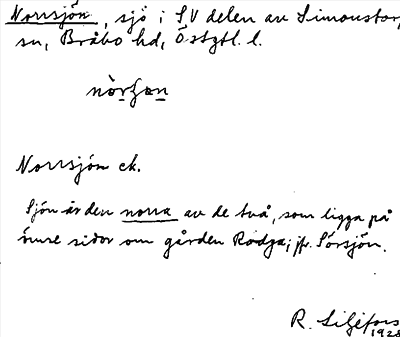 Norrsjön, sjö i SV delen av Simonstorp
sn, Bråbo hd, Östgtl. l.
nòrʃo̱n
Norrsjön ek.
Sjön är den norra av de två, som ligga på
ömse sidor om gården Rodga; jfr. Sörsjön.
R. Liljefors
1928